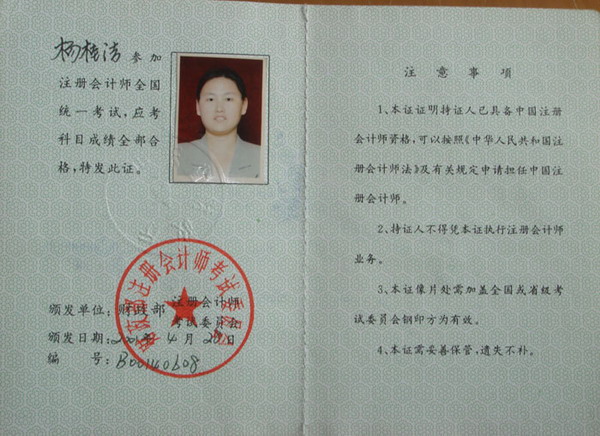 杨桔洁 参加
注册会计师全国
统一考试，应考
科目成绩全部合
格，特发此证。
财政部注册会计师考试委员会
颁发单位：财政部 注册会计师
考试委员会
颁发日期：2001年4月20日
编 号：B00140608
注意事项
1、本证证明持证人已具备中国注册
会计师资格，可以按照《中华人民共和国注
册会计师法》及有关规定申请担任中国注
册会计师。
2、持证人不得凭本证执行注册会计师
业务。
3、本证像片处需加盖全国或省级考
试委员会钢印方为有效。
4、本证需妥善保管，遗失不补。